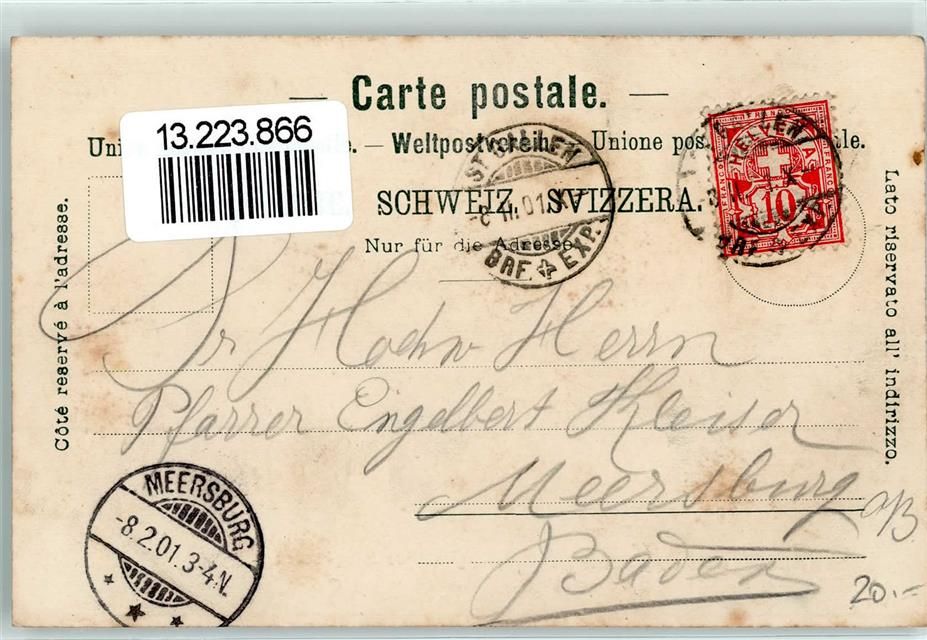 Carte postale.
13.223.866
Weltpostverein. Unione pos
SCHWEIZ. SVIZZERA.
Nur für die Adresse.
Côté reservé à l'adresse.
Lato riservato all' indirizzo.
ST. GALLEN
-8.II.01.
BRF. EXP.
FRANCO
HELVETIA
10
Sr Hochw Herrn
Pfarrer Engelbert Kleiser
Meersburg
a/B.
Baden
MEERSBURG
-8.2.01.3-4.N.
20.-